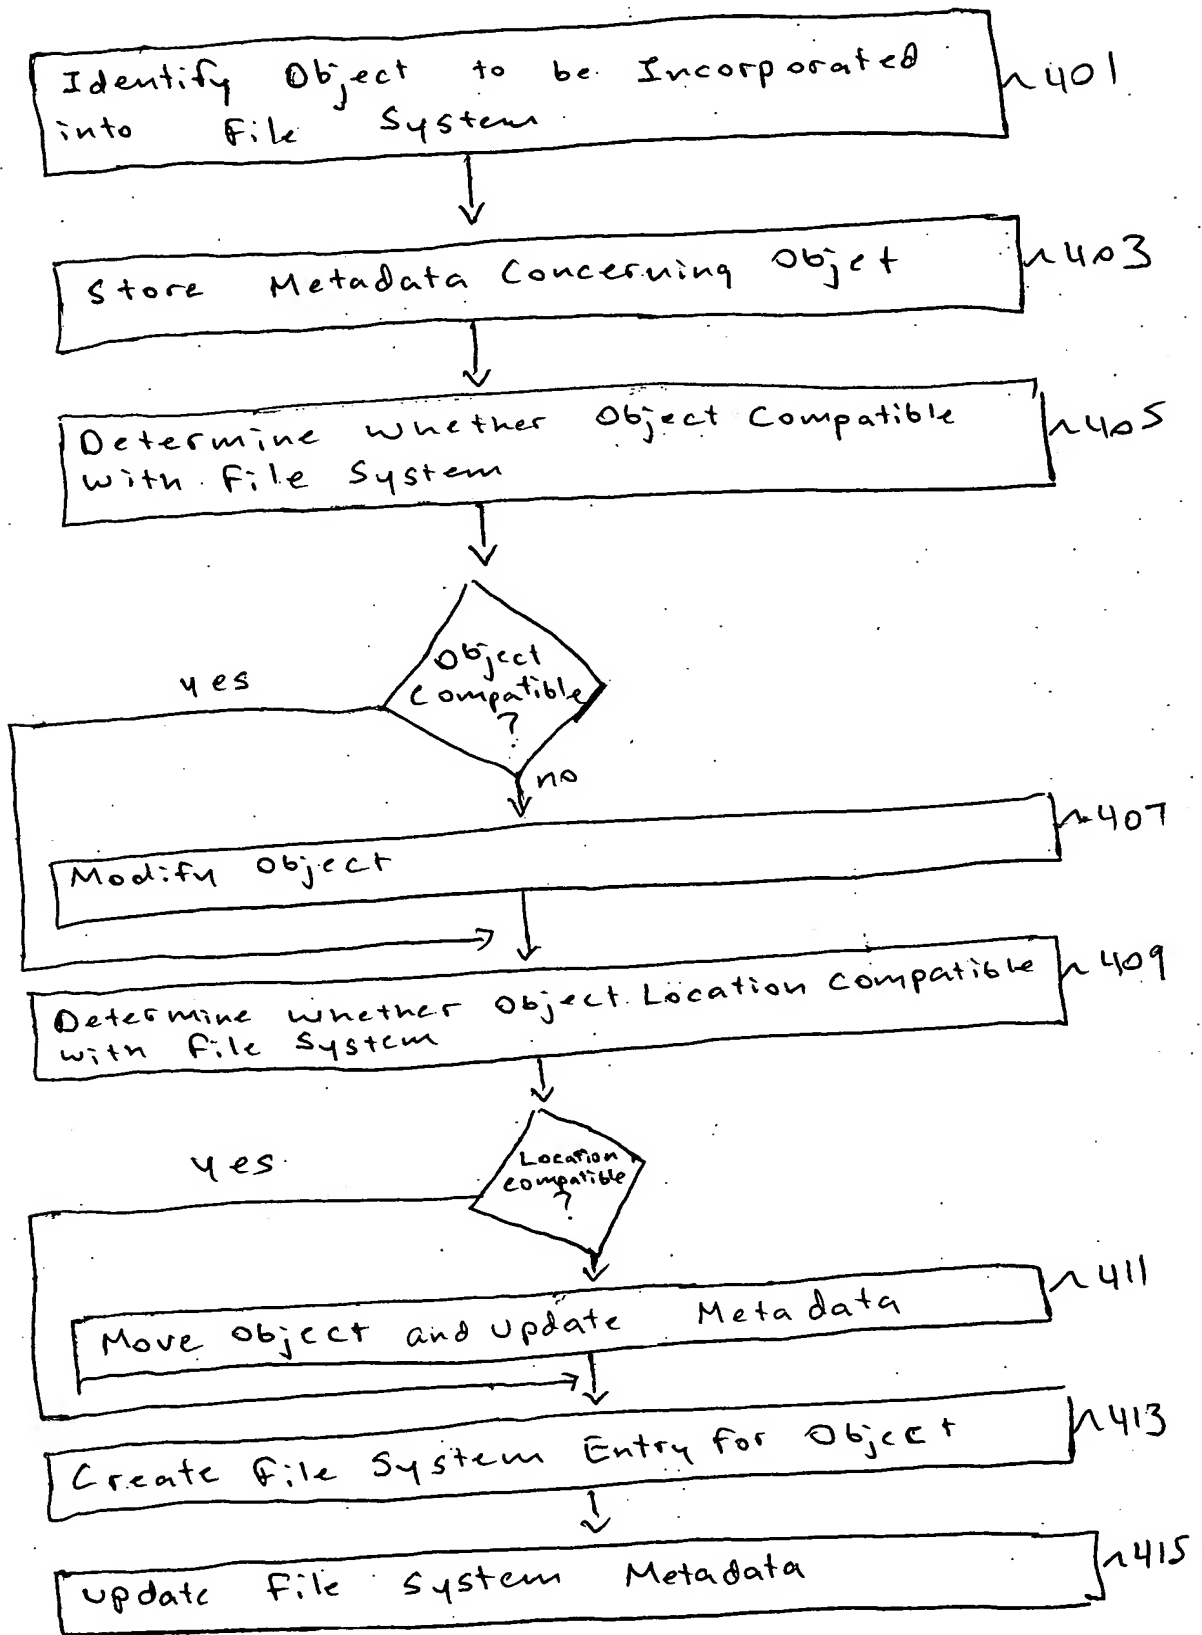 Identify Object to be Incorporated
into File System
401
Store Metadata Concerning Objet
403
Determine whether Object Compatible
with File System
405
Object
Compatible
?
yes
no
Modify Object
407
Determine whether Object Location Compatible
with File System
409
Location
Compatible
?
yes
Move Object and Update Metadata
411
Create File System Entry for Object
413
Update File System Metadata
415